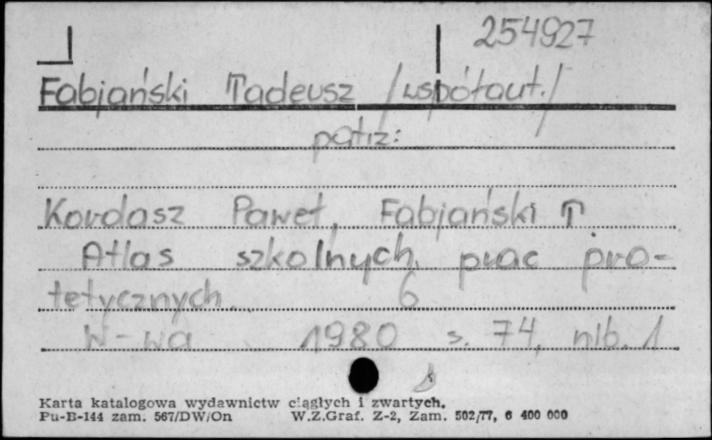 254927
Fabjański Tadeusz /współaut./
patrz:
Kordasz Paweł, Fabjański T
Atlas szkolnych prac pro-
tetycznych 6
W-wa 1980 s. 74, nlb. 1
Karta katalogowa wydawnictw ciągłych i zwartych.
Pu-B-144 zam. 567/DW/On W.Z.Graf. Z-2, Zam. 502/77, 6 400 000